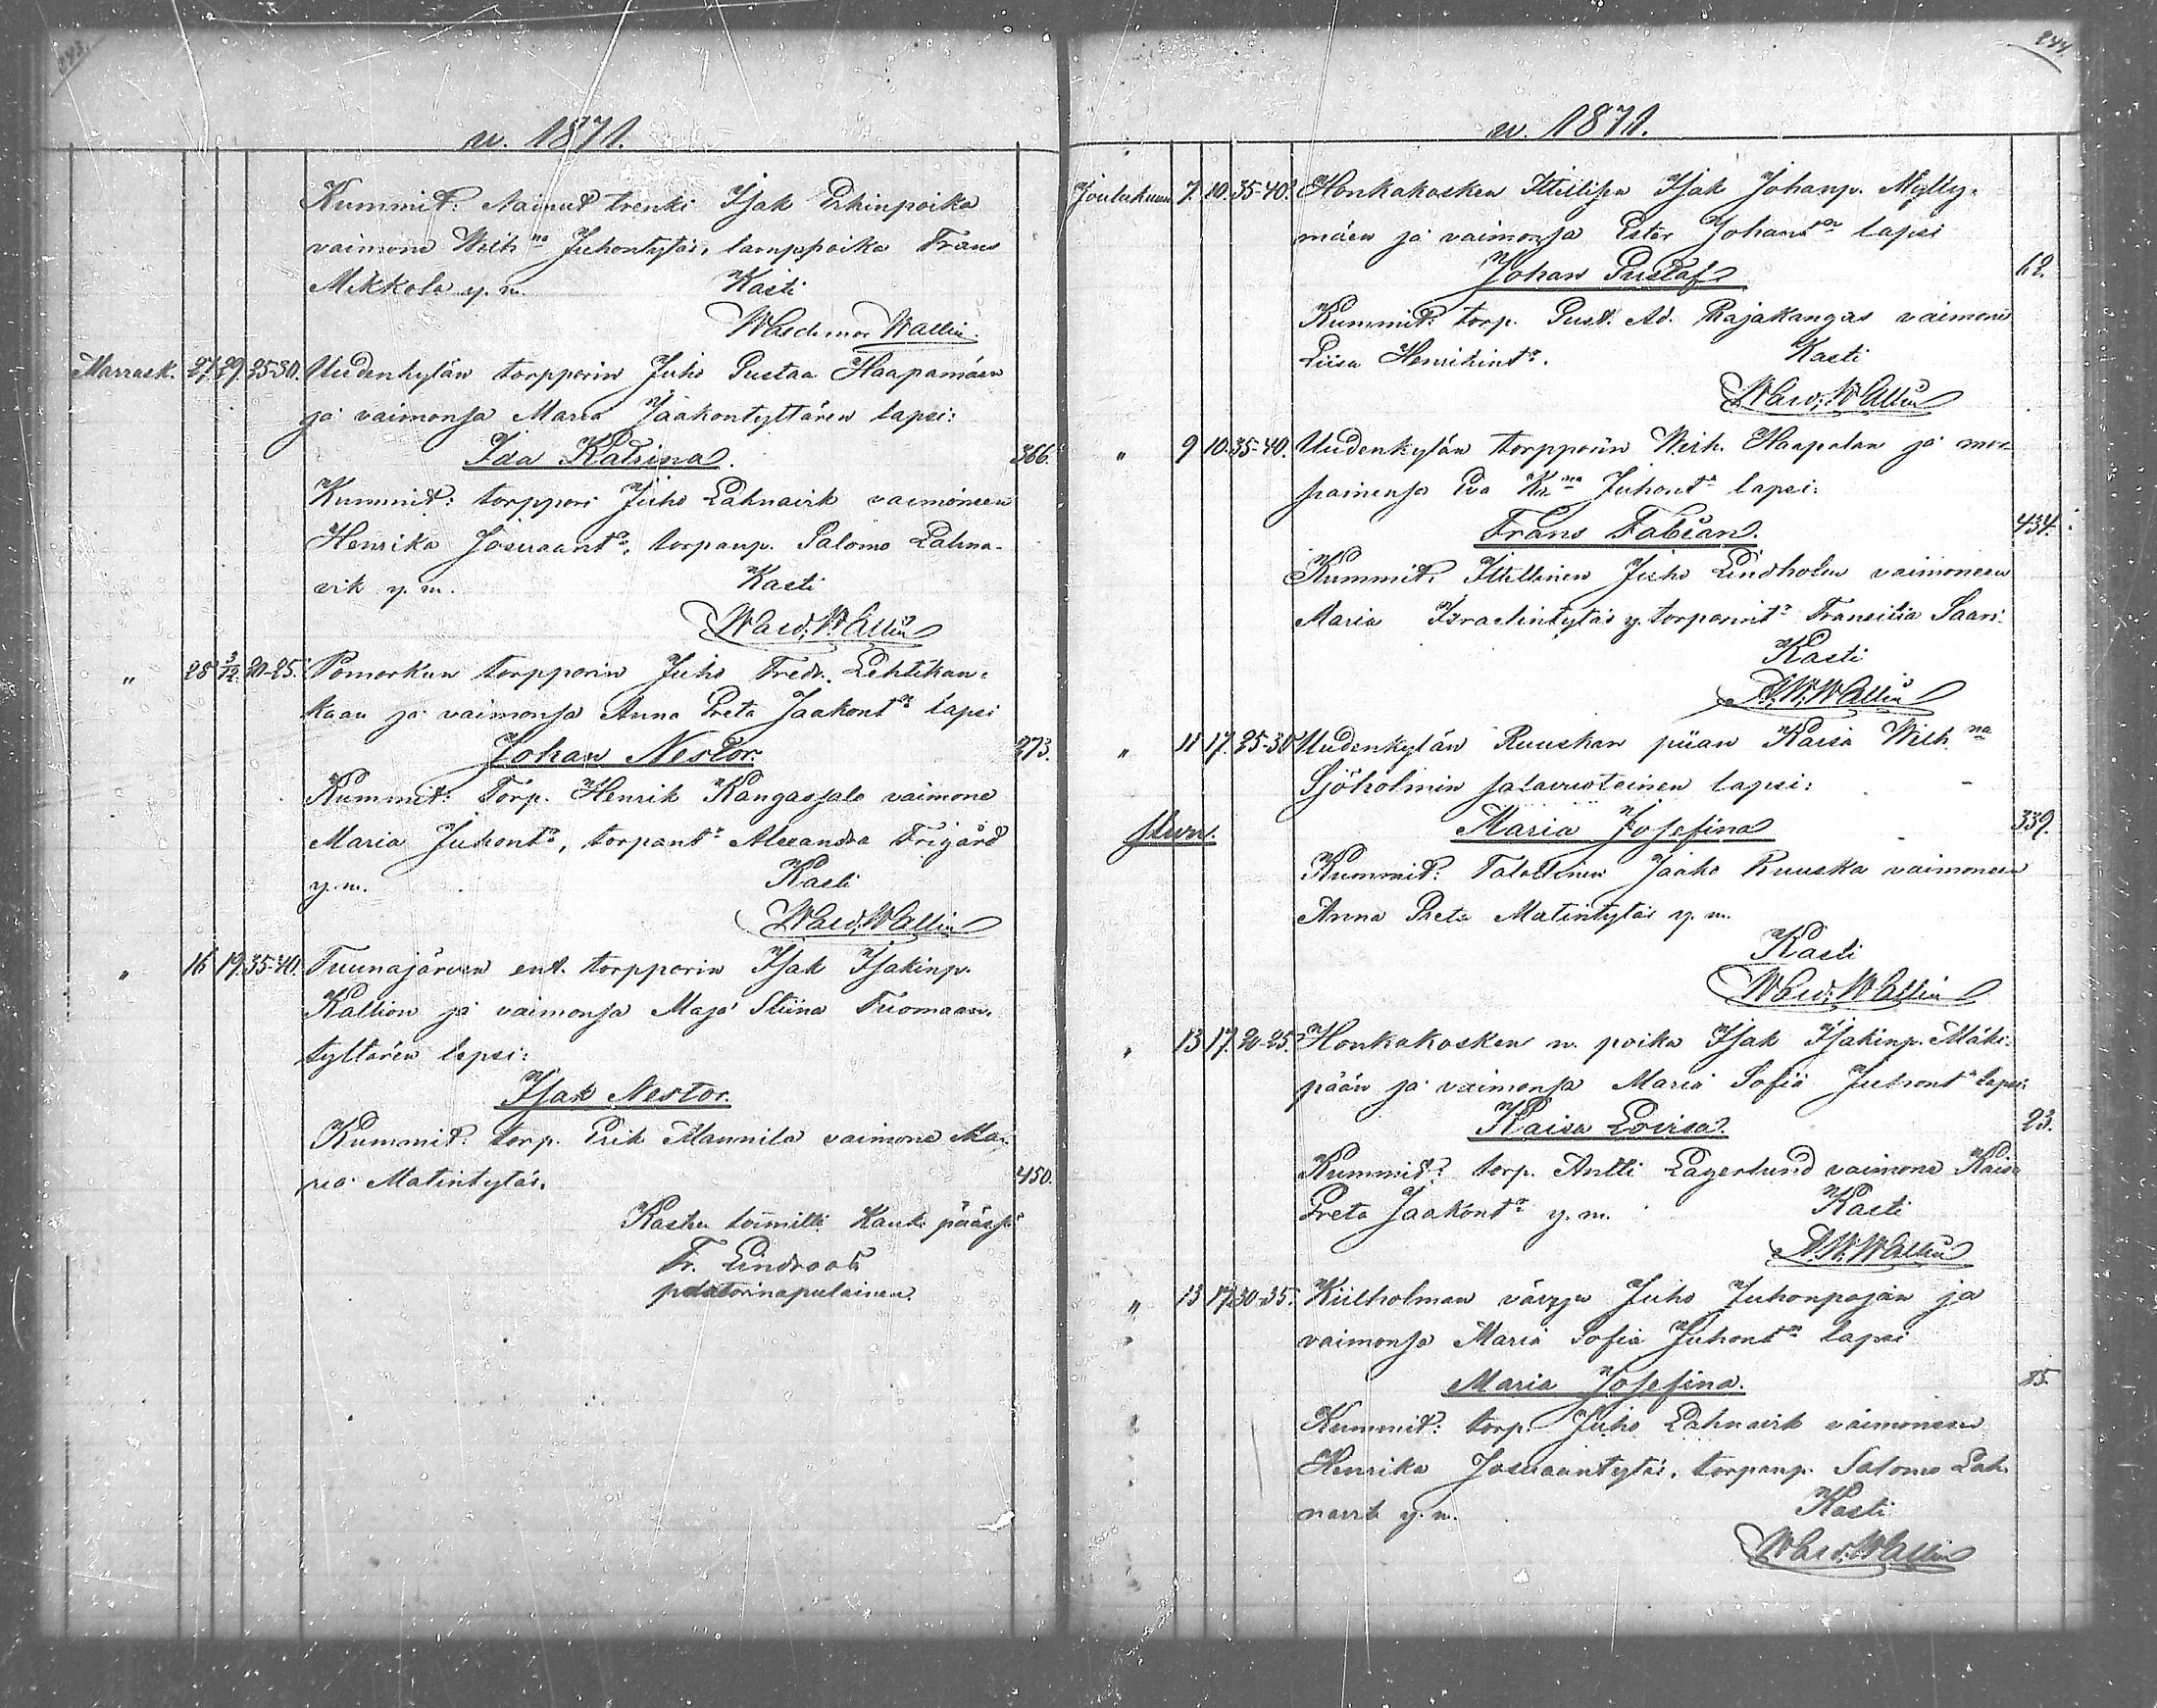 243.
v. 1871.
Kummit: Nainut trenki Isak Erkinpoika
vaimone Wilh:na Juhontytär, lamppoika Frans
Mikkola y. m. Kasti
Waldemar Wallin
Marrask. 27. 29. 25-30. Uudenkylän torpparin Juho Gustaa Haapamäen
ja vaimonsa Maria Jaakontyttären lapsi:
Ida Katrina. 366.
Kummit: torppari Juho Lahnavik vaimoneen
Henrika Josuaant:r, torpanp. Salomo Lahna-
vik y. m. Kasti
Wald. Wallin
" 28 3/12. 20-25. Pomarkun torpparin Juho Fredr. Lehtikan-
kaan ja vaimonsa Anna Greta Jaakont:n lapsi
Johan Nestor. 273.
Kummit: Torp. Henrik Kangassalo vaimone
Maria Juhont:r, torpant:r Alexandra Frigård
y. m. Kasti
Wald. Wallin
" 16 19. 35-40. Tuunajärven ent. torpparin Isak Isakinp.
Kallion ja vaimonsa Maja Stiina Tuomaan-
tyttären lapsi:
Isak Nestor.
Kummit: torp. Erik Mannila vaimone Ma-
ria Matintytär. 450.
Kasteen toimitti Kauh: päässä
Fr. Lindroos
pastorinapulainen.
244.
v. 1871.
Joulukuun 7. 10. 35-40. Honkakosken Itsellisen Isak Johanp. Mylly-
mäen ja vaimonsa Ester Johant:n lapsi
Johan Gustaf 62.
Kummit: torp. Gust. Ad. Rajakangas vaimone
Liisa Henrikint:r. Kasti
Wald. Wallin
" 9 10. 35-40. Uudenkylän torpparin Wilh. Haapalan ja mor-
siamensa Eva Kr:na Juhont:r lapsi:
Frans Fabian. 434.
Kummit: Itsellinen Juho Lindholm vaimoneen
Maria Israelintytär y. torparint:r Fransilia Saari.
Kasti
A. W. Wallin
" 11 17. 25-30 Uudenkylän Ruuskan piian Kaisa Wilh:na
Sjöholmin salavuoteinen lapsi:
Maria Josefina 339.
Kummit: Talollinen Jaako Ruuska vaimoneen
Anna Greta Matintytär y. m.
Kasti
Wald. Wallin
" 13 17. 20-25. Honkakosken n. poika Isak Isakinp. Mäki-
pään ja vaimonsa Maria Sofia Juhont:n lapsi:
Kaisa Lovisa. 23.
Kummit: torp. Antti Lagerlund vaimone Kaisa
Greta Jaakont:r y. m. Kasti
A. W. Wallin
" 13 17. 30-35. Kiilholman värjäri Juho Juhonpojan ja
vaimonsa Maria Sofia Juhont:n lapsi
Maria Josefina. 85.
Kummit: torp. Juho Lahnavik vaimoneen
Henrika Josuaantytär, torpanp. Salomo Lah-
navik y. m. Kasti
Wald. Wallin